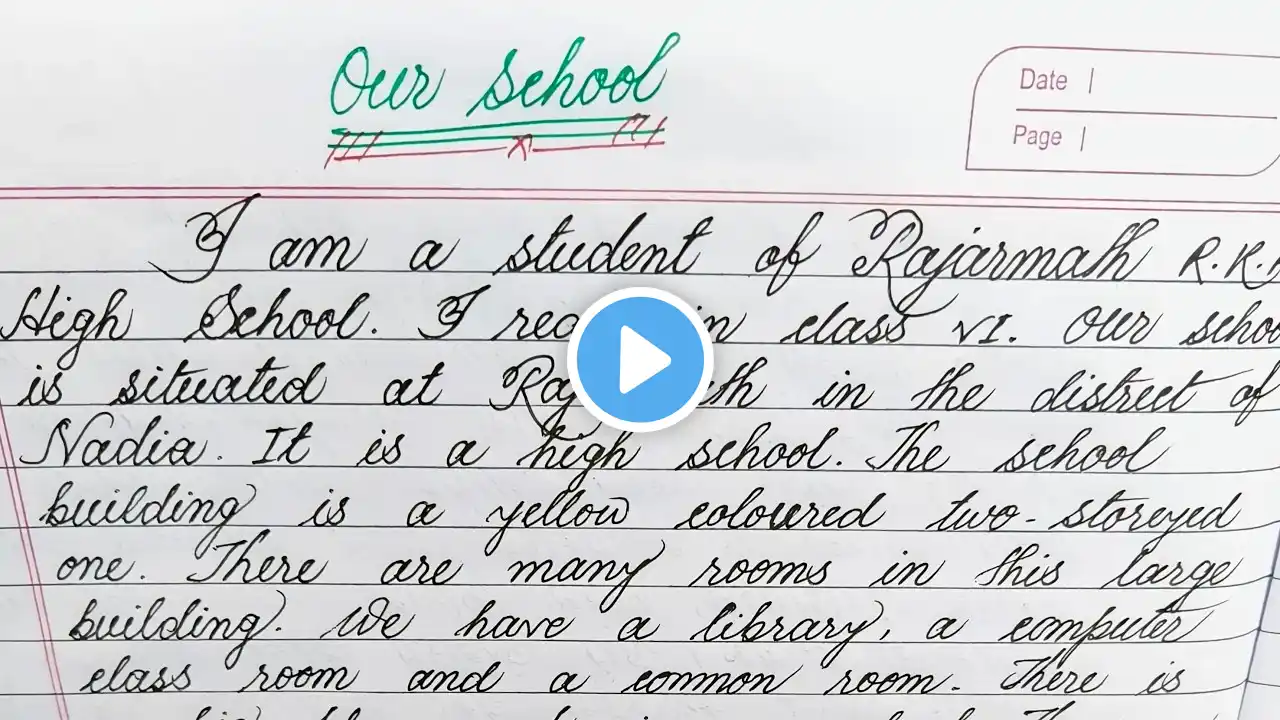 Our School
Date
Page
I am a student of Rajarmath R.K.
High School. I in class VI. Our
is situated at in the district of
Nadia. It is a high school. The school
building is a yellow coloured two-storeyed
one. There are many rooms in this large
building. We have a library, a computer
class room and a common room. There is